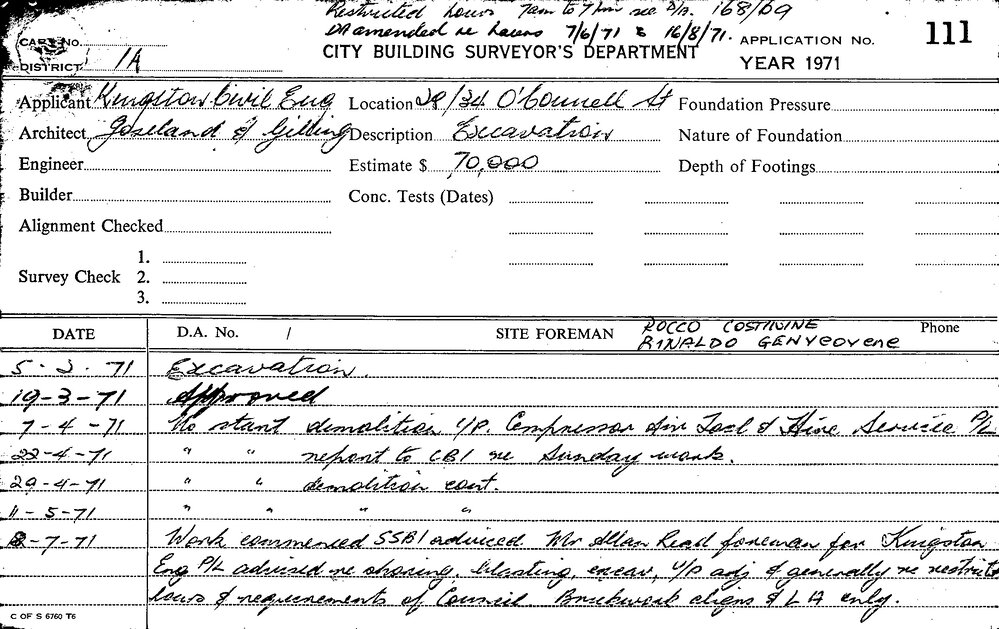 Restricted hours 7am to 7pm see D/A. 168/69
DA amended re hours 7/6/71 & 16/8/71.
CARD NO.
CITY BUILDING SURVEYOR'S DEPARTMENT
APPLICATION NO. 111
DISTRICT 1A
YEAR 1971
Applicant Kingston Civil Eng Location 28/34 O'Connell St Foundation Pressure
Architect Joseland & Gilling Description Excavation Nature of Foundation
Engineer Estimate $ 70,000 Depth of Footings
Builder Conc. Tests (Dates)
Alignment Checked
1.
Survey Check 2.
3.
DATE D.A. No. / SITE FOREMAN ROCCO COSTIVINE Phone
RINALDO GENYCOVENE
5-3.71 Excavation.
19-3-71 Approved
7-4-71 No start demolition U/P. Compressor Air Tool & Hire Service P/L
22-4-71 " " report to CBI re Sunday work.
29-4-71 " " demolition cont.
11-5-71 " " " "
8-7-71 Work commenced SSBI adviced. Mr Allan Read foreman for Kingston
Eng P/L advised re shoring, blasting, excav, U/P adj & generally re restrict
hours & requirements of Council. Brickwork aligns & LA only.
C OF S 6760 T6